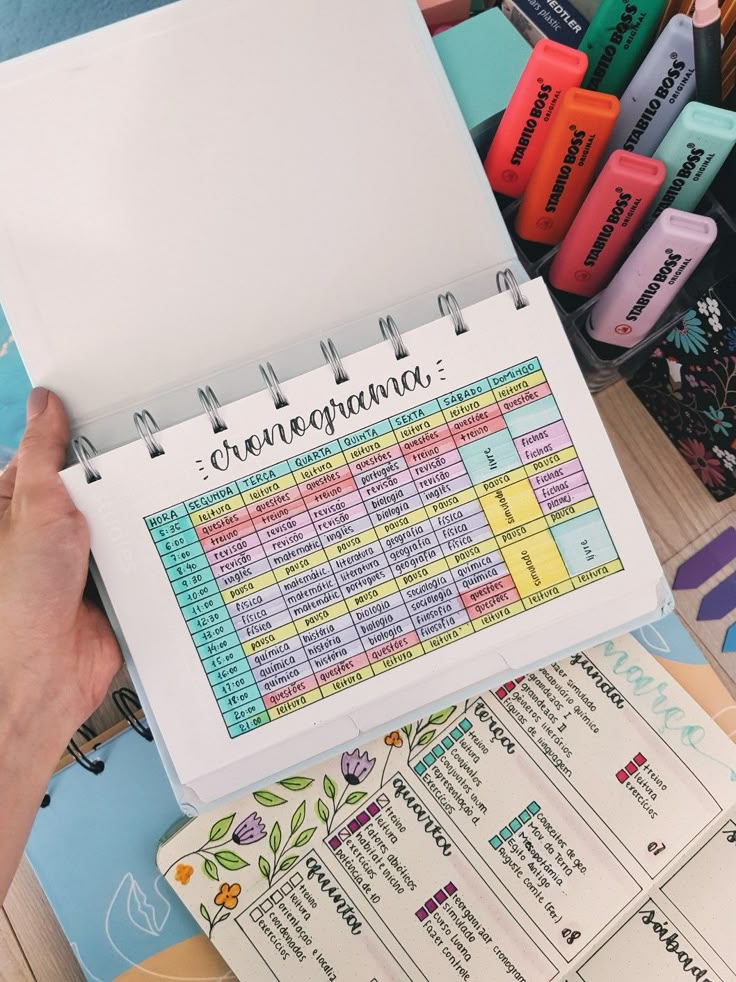 STAEDTLER
STABILO BOSS ORIGINAL
STABILO BOSS ORIGINAL
STABILO BOSS ORIGINAL
STABILO BOSS ORIGINAL
STABILO BOSS ORIGINAL
STABILO BOSS ORIGINAL
STABILO BOSS ORIGINAL
cronograma
HORA SEGUNDA TERÇA QUARTA QUINTA SEXTA SÁBADO DOMINGO
5:35 leitura leitura leitura leitura leitura leitura leitura
6:00 questões questões questões questões questões questões questões
7:00 treino treino treino português treino treino
8:40 revisão revisão revisão revisão revisão livre fichas
9:30 revisão revisão revisão biologia revisão fichas
10:00 inglês matemátic inglês biologia inglês
11:00 pausa pausa pausa pausa pausa pausa pausa
12:30 física matemátic. literatura geografia física simulado fichas
13:00 física matemátic literatura geografia física fichas
14:00 física matemátic português geografia física planej
15:00 pausa pausa pausa pausa pausa pausa pausa
16:00 química história biologia sociologia química simulado livre
17:00 química história biologia sociologia química
18:00 química história biologia filosofia questões
20:00 questões questões questões filosofia questões
21:00 leitura leitura leitura leitura leitura leitura leitura
março
segunda
fazer simulado
vocabulário químico
grandezas I
grandezas II
gêneros literários
figuras de linguagem
treino
leitura
exercícios
07
terça
treino
leitura
Conjuntos
conjuntos num
representação d
Exercícios
conceitos de geo.
Mov da Terra
Mesopotâmia
Egito antigo
Auguste comte (Ser)
08
quarta
treino
leitura
fatores abióticos
habitat e nicho
exercícios
potência de 10
reorganizar cronogram
simulado
curso Luana
fazer controle
quinta
treino
leitura
orientação e localiz
coordenadas
exercícios
sábado